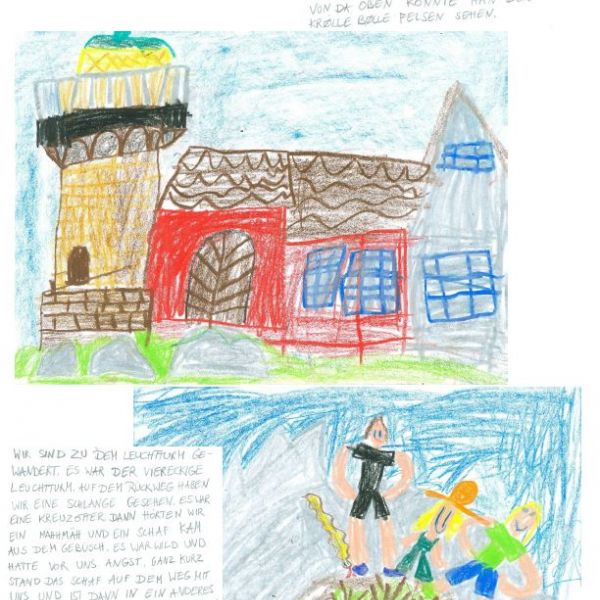 VON DA OBEN KONNTE MAN
KRØLLE BØLLE FELSEN SEHEN.
WIR SIND ZU DEM LEUCHTTURM GE-
WANDERT. ES WAR DER VIERECKIGE
LEUCHTTURM. AUF DEM RÜCKWEG HABEN
WIR EINE SCHLANGE GESEHEN. ES WAR
EINE KREUZOTTER. DANN HÖRTEN WIR
EIN MÄHHMÄH UND EIN SCHAF KAM
AUS DEM GEBÜSCH. ES WAR WILD UND
HATTE VOR UNS ANGST. GANZ KURZ
STAND DAS SCHAF AUF DEM WEG MIT
UNS UND IST DANN IN EIN ANDERES